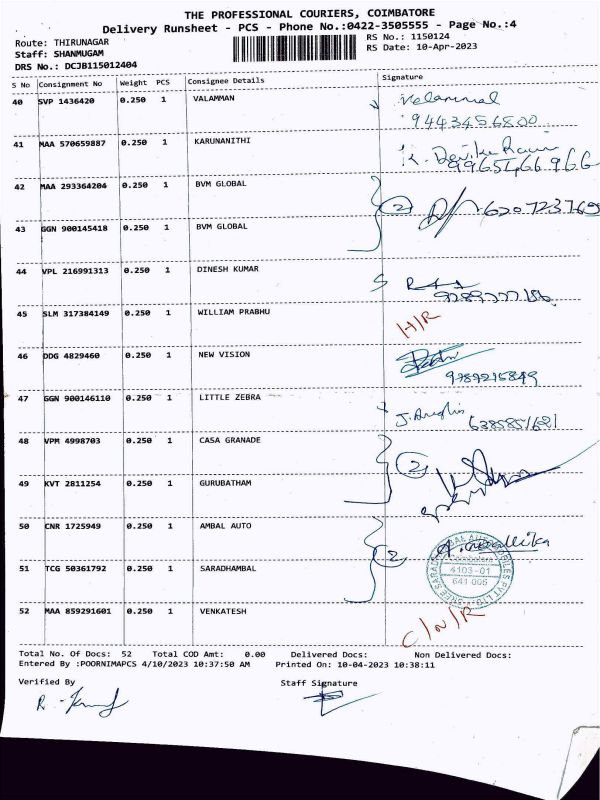 THE PROFESSIONAL COURIERS, COIMBATORE
Delivery Runsheet - PCS - Phone No.:0422-3505555 - Page No.:4
Route: THIRUNAGAR
RS No.: 1150124
Staff: SHANMUGAM
RS Date: 10-Apr-2023
DRS No.: DCJB115012404
S No Consignment No Weight PCS Consignee Details Signature
40 SVP 1436420 0.250 1 VALAMMAN
9443456800
41 MAA 570659887 0.250 1 KARUNANITHI
42 MAA 293364204 0.250 1 BVM GLOBAL
2
43 GGN 900145418 0.250 1 BVM GLOBAL
44 VPL 216991313 0.250 1 DINESH KUMAR
45 SLM 317384149 0.250 1 WILLIAM PRABHU
H/R
46 DDG 4829460 0.250 1 NEW VISION
9789215849
47 GGN 900146110 0.250 1 LITTLE ZEBRA
48 VPM 4998703 0.250 1 CASA GRANADE
2
49 KVT 2811254 0.250 1 GURUBATHAM
50 CNR 1725949 0.250 1 AMBAL AUTO
2
51 TCG 50361792 0.250 1 SARADHAMBAL
4103-01
641 005
52 MAA 859291601 0.250 1 VENKATESH
C/N/R
Total No. Of Docs: 52 Total COD Amt: 0.00 Delivered Docs: Non Delivered Docs:
Entered By :POORNIMAPCS 4/10/2023 10:37:50 AM Printed On: 10-04-2023 10:38:11
Verified By Staff Signature